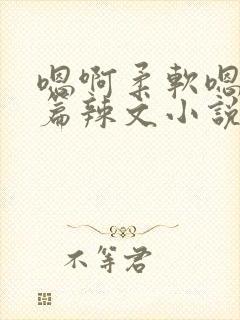 嗯啊柔軟嗯
篇辣文小說
不等君